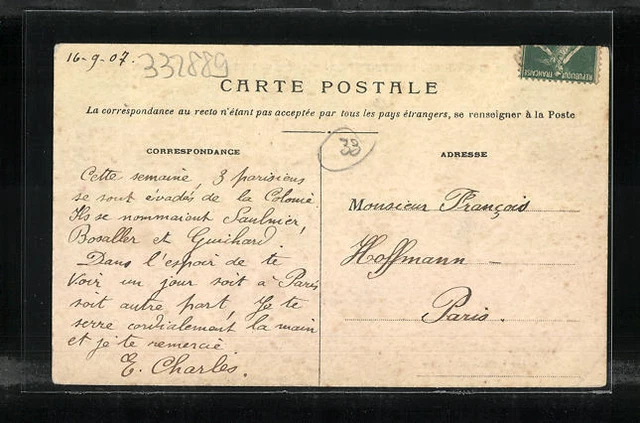 16-9-07.
332889
CARTE POSTALE
La correspondance au recto n'étant pas acceptée par tous les pays étrangers, se renseigner à la Poste
CORRESPONDANCE
Cette semaine, 3 parisiens
se sont évadés de la Colonie.
Ils se nommaient Saulnier,
Bosaller et Guihard.
Dans l'espoir de te
voir un jour soit à Paris
soit autre part, Je te
serre cordialement la main
et je te remercie
E. Charles.
30
ADRESSE
Monsieur François
Hoffmann -
Paris.
REPUBLIQUE FRANÇAISE